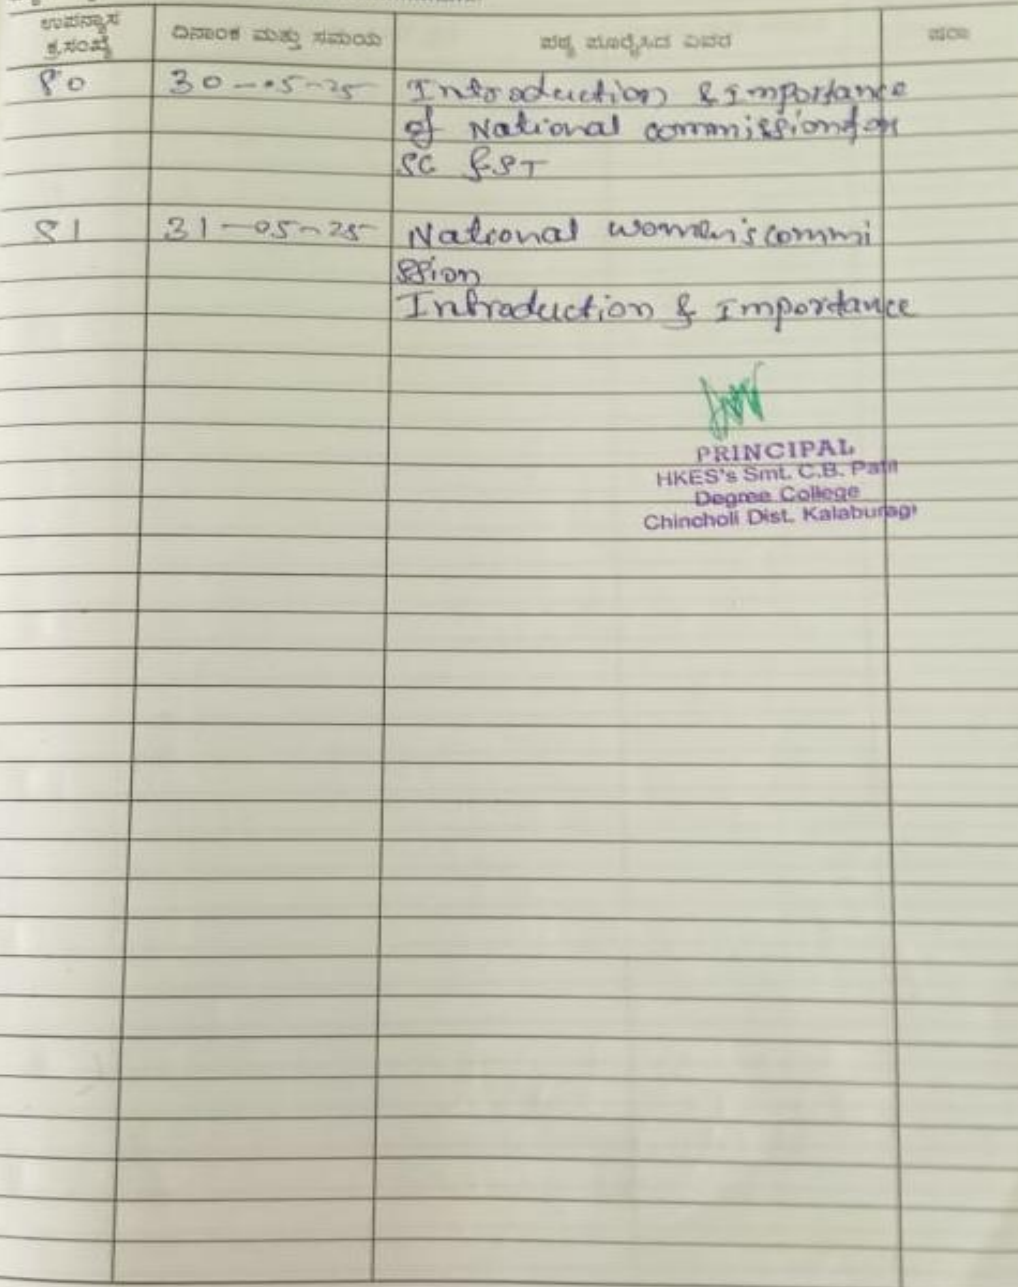 ಉಪನ್ಯಾಸ ಕ್ರ.ಸಂಖ್ಯೆ ದಿನಾಂಕ ಮತ್ತು ಸಮಯ ಪಠ್ಯ ಪೂರೈಸಿದ ವಿವರ ಷರಾ
80 30-05-25 Introduction & Importance
of National commission for
SC & ST
81 31-05-25 National women's commi
ssion
Introduction & Importance
PRINCIPAL
HKES's Smt. C.B. Patil
Degree College
Chincholi Dist. Kalaburagi